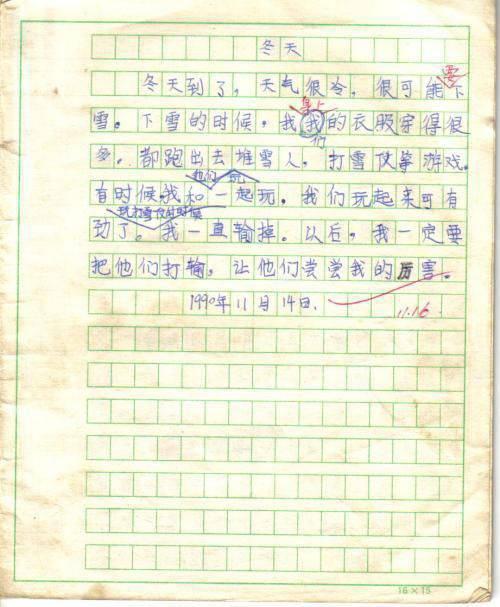 冬天
冬天到了，天气很冷，很可能要下
雪。下雪的时候，我们身上的衣服穿得很
多。都跑出去堆雪人，打雪仗等游戏。
他们 玩
有时候我和一起玩。我们玩起来可有
玩打雪仗的时候
劲了。我一直输掉。以后，我一定要
把他们打输，让他们尝尝我的厉害。
1990年11月14日.
11.16
16×15